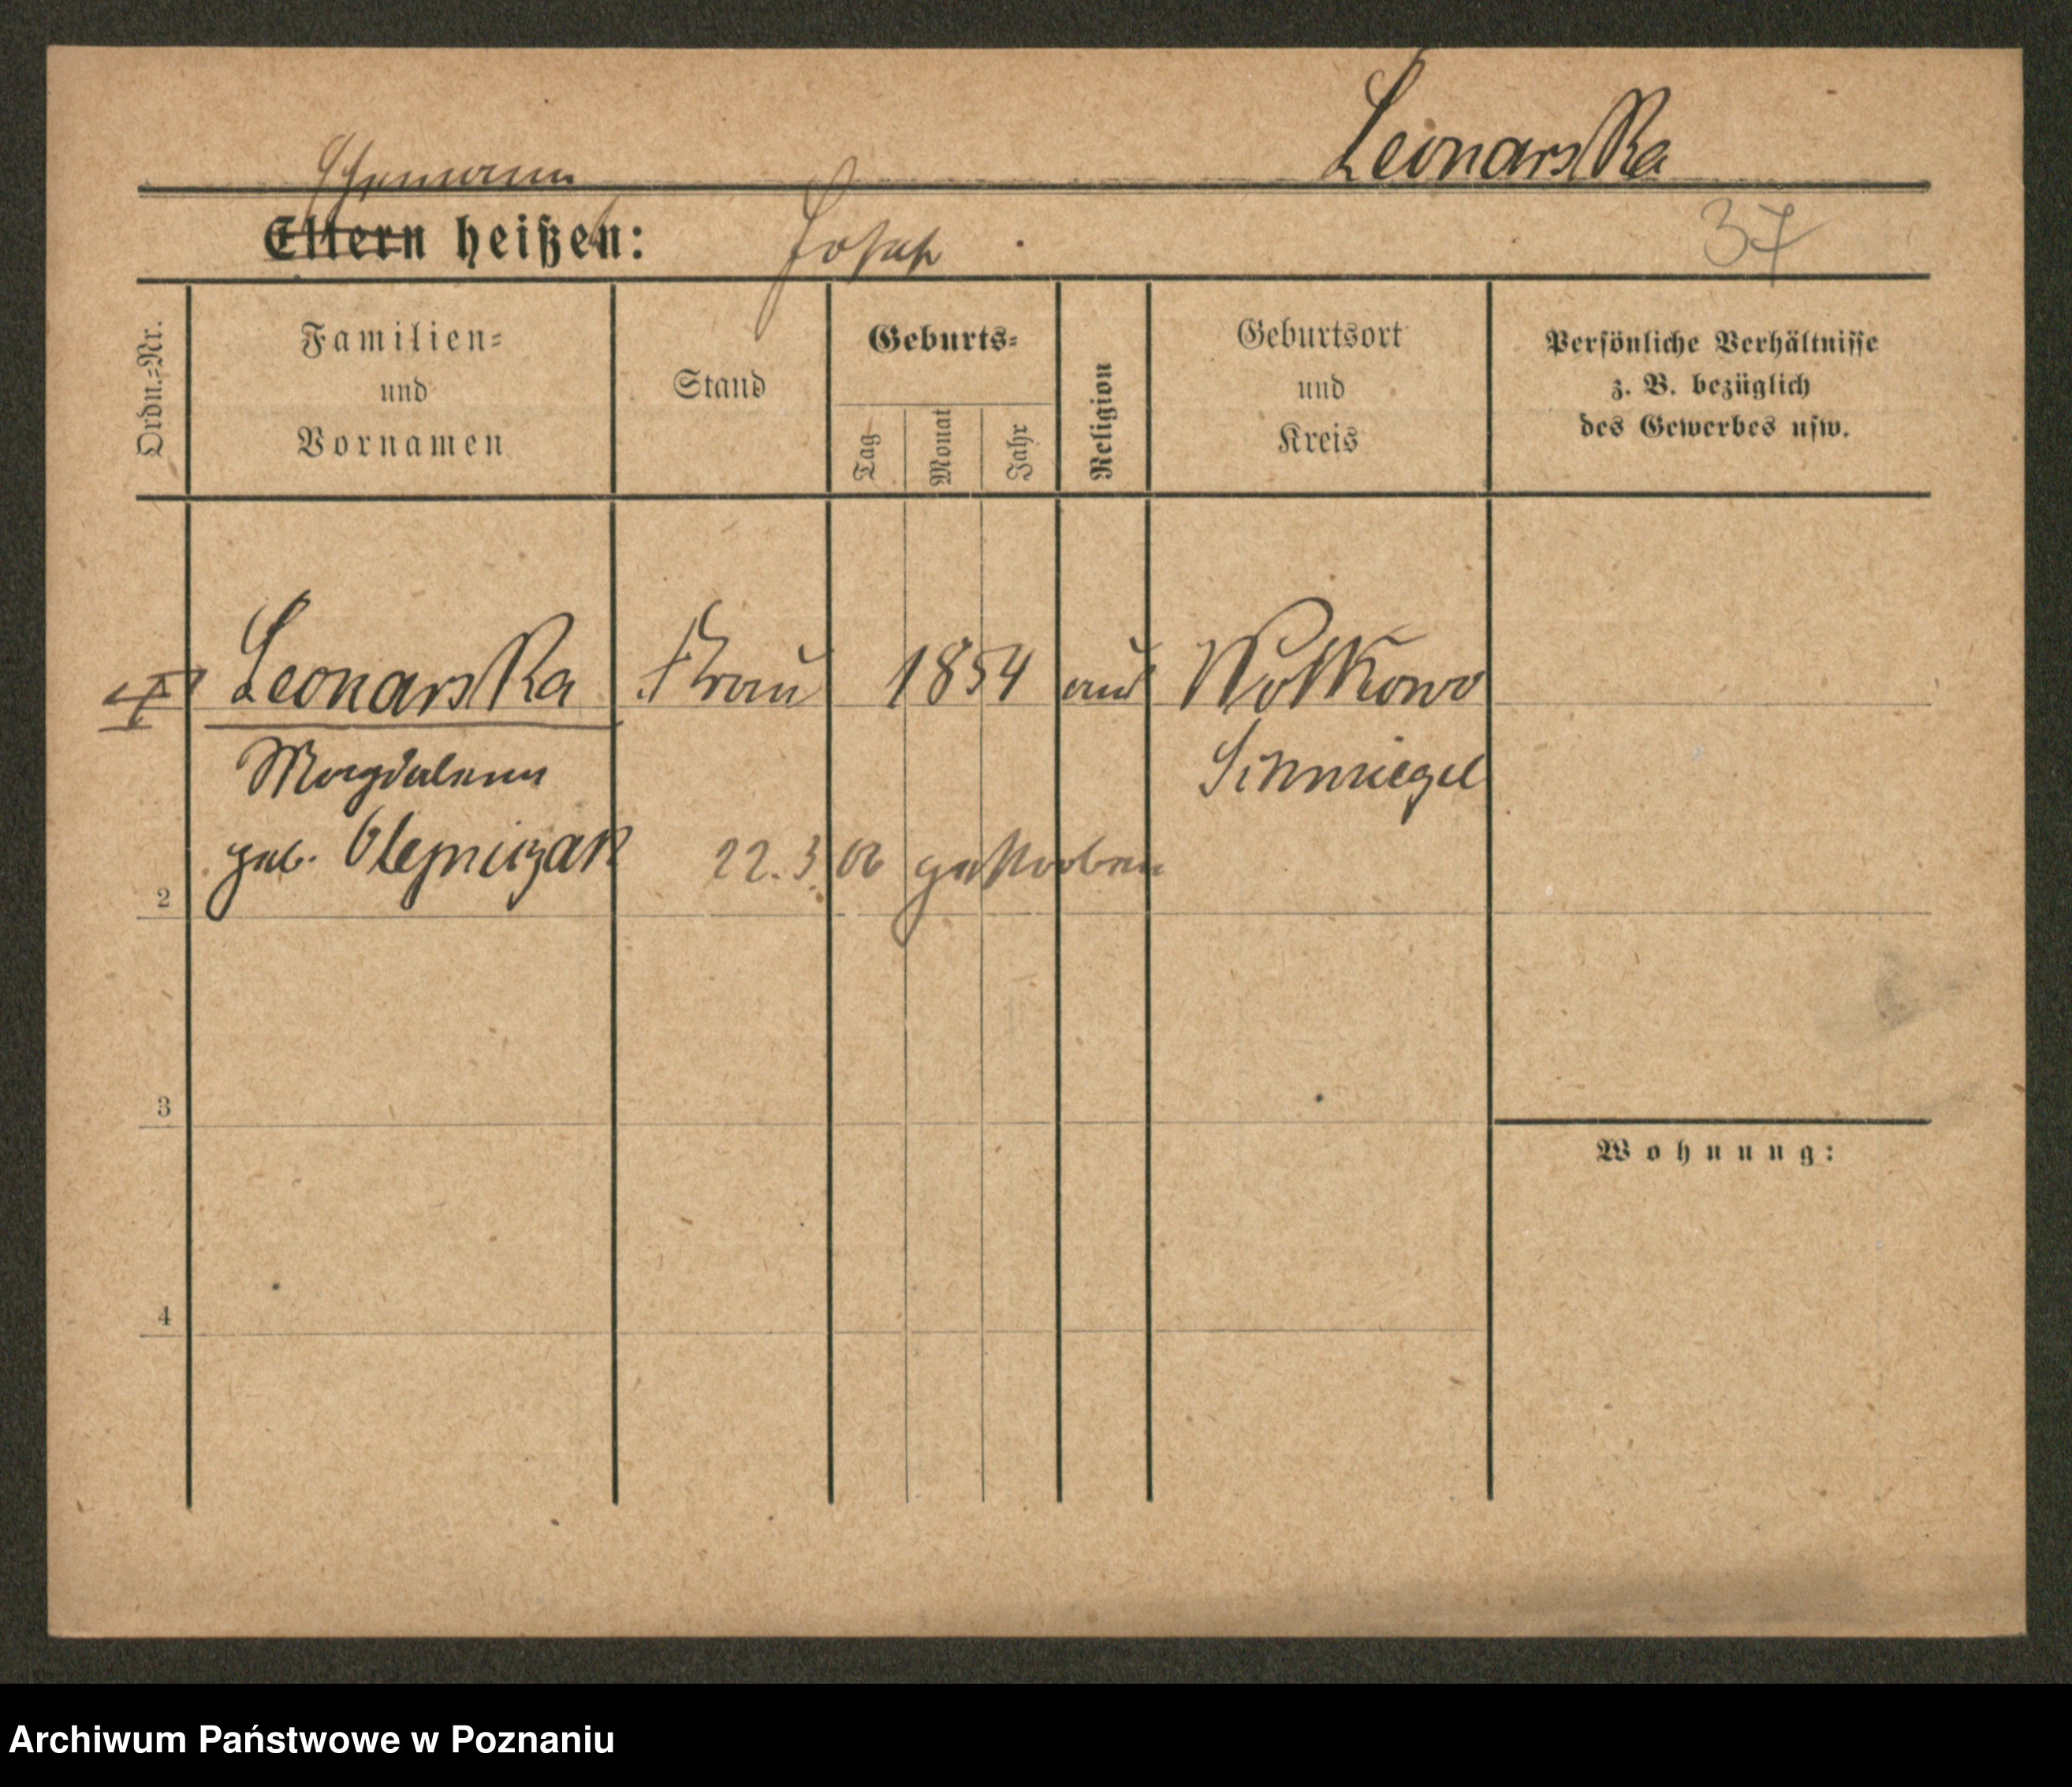 Leonarska
Ehemann
Eltern heißen: Josef
37
Ordn.-Nr.
Familien-
und
Vornamen
Stand
Geburts-
Tag
Monat
Jahr
Religion
Geburtsort
und
Kreis
Persönliche Verhältnisse
z. B. bezüglich
des Gewerbes usw.
Leonarska Frau 1854 Wolkowo
Magdalena Schmiegel
geb. Olejniczak 22.3.06 gestorben
2
3
Wohnung:
4
Archiwum Państwowe w Poznaniu